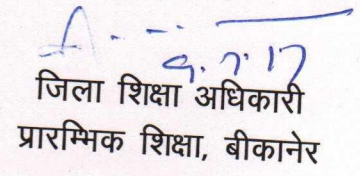 9.7.17
जिला शिक्षा अधिकारी
प्रारम्भिक शिक्षा, बीकानेर